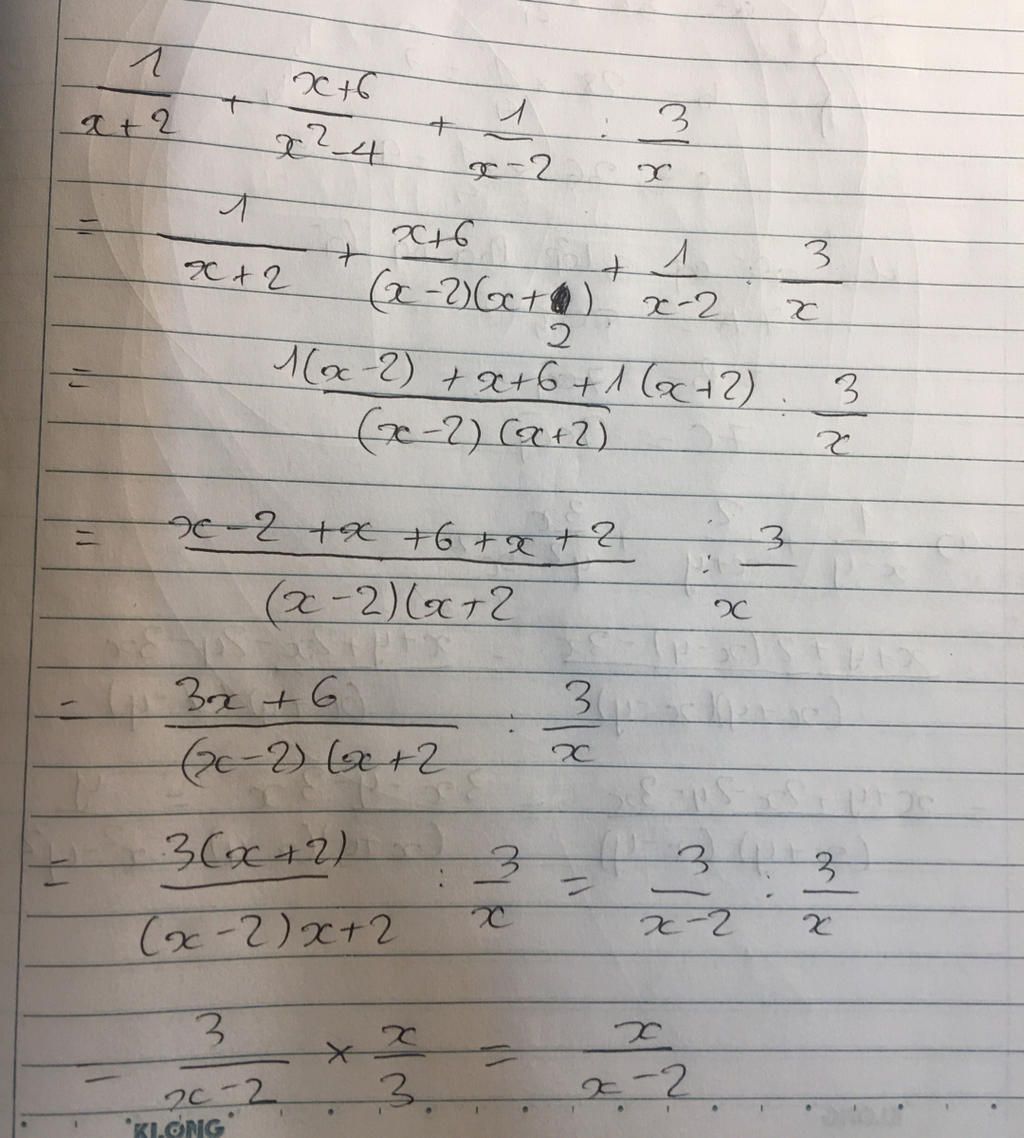 1/(x+2) + (x+6)/(x²-4) + 1/(x-2) : 3/x
= 1/(x+2) + (x+6)/((x-2)(x+2)) + 1/(x-2) : 3/x
= (1(x-2) + x+6 + 1(x+2))/((x-2)(x+2)) : 3/x
= (x-2+x+6+x+2)/((x-2)(x+2) : 3/x
= (3x+6)/((x-2)(x+2) : 3/x
= 3(x+2)/((x-2)x+2) : 3/x = 3/(x-2) : 3/x
= 3/(x-2) × x/3 = x/(x-2)
KLONG